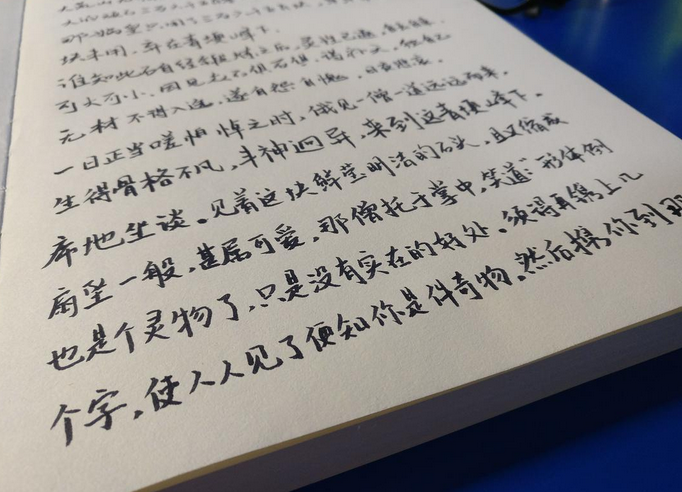 那娲皇只用了三万六千五百块
块未用,弃在青埂峰下。
谁知此石自经锻炼之后,灵性已通,
可大可小。因见众石俱得补天,独自己
无材不得入选,遂自怨自愧,日夜悲哀。
一日正当嗟怕悼之时,俄见一僧一道远远而来,
生得骨格不凡,丰神迥异,来到这青埂峰下。
席地坐谈。见着这块鲜莹明洁的石头,且又缩成
扇坠一般,甚属可爱,那僧托于掌中,笑道:形体倒
也是个灵物了,只是没有实在的好处。须得再镌上几
个字,使人人见了便知你是件奇物。然后携你到那